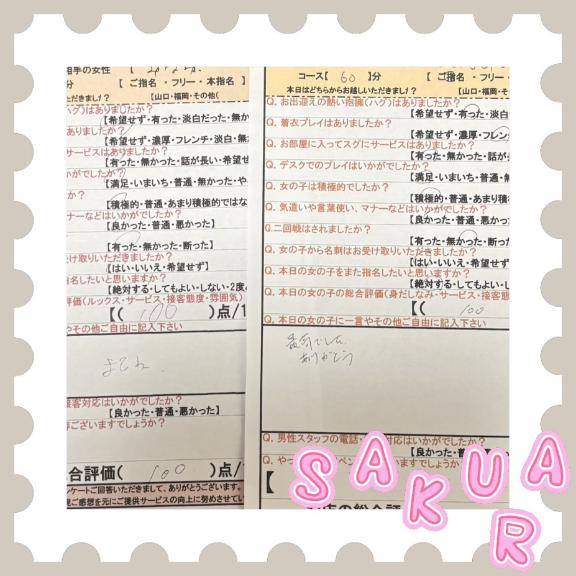 相手の女性 【
【 ご指名 ・ フリー ・ 本指名 】
【山口・福岡・その他(
ハグ)はありましたか?
【希望せず・有った・淡白だった・無か
ありましたか?
【希望せず・濃厚・フレンチ・淡白・無
サービスはありましたか?
【有った・無かった・話が長い・希望せ
かがでしたか?
【満足・いまいち・普通・無かった・や
か?
【積極的・普通・あまり積極的ではな
ナーなどはいかがでしたか?
【良かった・普通・悪かった】
【有った・無かった・断った】
け取りいただきましたか?
【はい・いいえ・希望せず】
指名したいと思いますか?
【絶対する・してもよい・しない・2度
評価(ルックス・サービス・接客態度・雰囲気)
【( 100 )点/1
やその他ご自由に記入下さい
またね
接客対応はいかがでしたか?
【良かった・普通・悪かった】
ございますでしょうか?
合評価( 100 )点/
ンケートご回答いただきまして、ありがとうございます。
ご感想を元にご提供サービスの向上に努めさせてい
コース【 60 】分
【 ご指名 ・ フリー
本日はどちらからお越しいただけましたか?
【山口・福岡・そ
Q. お出迎えの熱い抱擁(ハグ)はありましたか?
【希望せず・有った・淡
Q. 着衣プレイはありましたか?
【希望せず・濃厚・フレン
Q. お部屋に入ってスグにサービスはありましたか?
【有った・無かった・話
Q. デスクでのプレイはいかがでしたか?
【満足・いまいち・普通・無
Q. 女の子は積極的でしたか?
【積極的・普通・あまり積
Q. 気遣いや言葉使い、マナーなどはいかがでしたか?
【良かった・普通・悪か
Q. 二回戦はされましたか?
【有った・無かった・断っ
Q. 女の子から名刺はお受け取りいただきましたか?
【はい・いいえ・希望せ
Q. 本日の女の子をまた指名したいと思いますか?
【絶対する・してもよい・し
Q. 本日の女の子の総合評価(身だしなみ・サービス・接客態
【( 100
Q. 本日の女の子に一言やその他ご自由に記入下さい
最高でした
ありがとう
Q. 男性スタッフの電話・対応はいかがでしたか?
【良かった・普
SAKURA